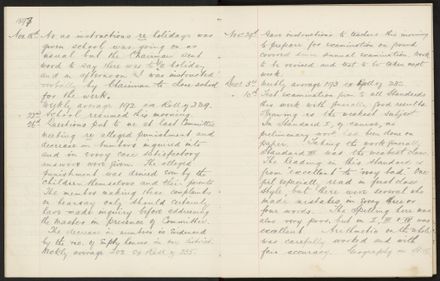 1897
Nov 15th. As no instructions re holidays was
given school was going on as
usual but the Chairman sent
word to say there was to be holiday
and in afternoon I was instructed
verbally by Chairman to close school
for the week.
Weekly average 192 ex Roll of 229.
22nd School resumed this morning.
26th Questions put to me at last Committee
meeting re alleged punishment and
decrease in numbers inquired into
and in every case satisfactory
answers were given. The alleged
punishment was denied even by the
children themselves and their parents
The member making these complaints
on hearsay only should certainly
have made inquiry before addressing
the master in presence of Committee.
The decrease in numbers is evidenced
by the no. of Empty houses in the District.
Weekly average 202 ex Roll of 225.
Nov 29th. Gave instructions to teachers this morning
to prepare for examination on ground
covered since Annual examination. work
to be revised and test to be taken next
week.
Dec 3rd Weekly average 193 ex Roll of
10th Test examination given to all Standards
this week with generally good results.
Drawing is the weakest subject
in Standard as
preliminary work has been done on
paper. Taking the work generally
Standard III was the weakest class.
The Reading in this Standard is
from "excellent" to "very bad". One
girl especially read in first class
style, but there were several who
made mistakes in every three or
four words. The Spelling here was
also very poor, but in V &
excellent. Arithmetic on the whole
was carefully worked and with
fair accuracy. Geography in